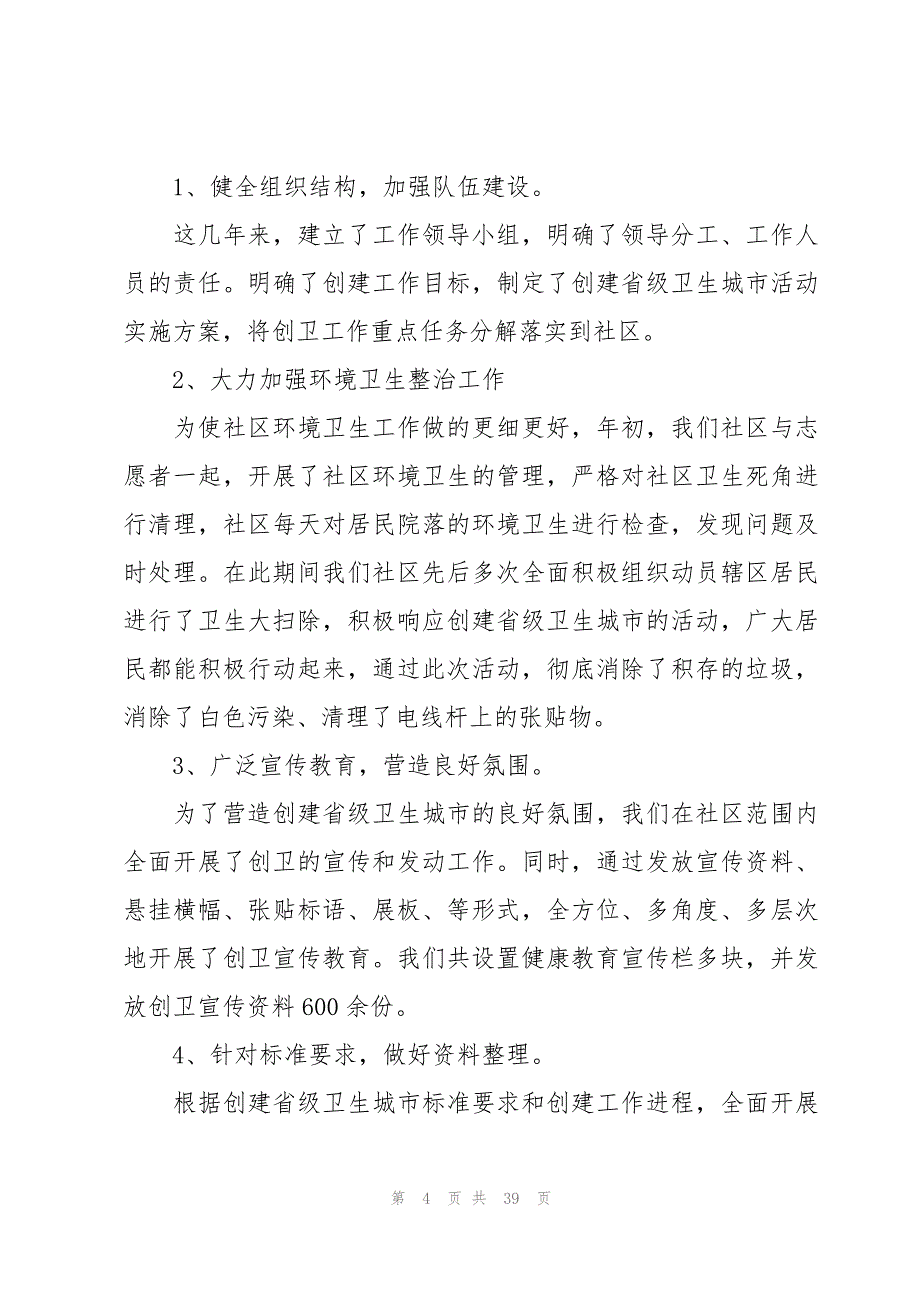 1、健全组织结构，加强队伍建设。
这几年来，建立了工作领导小组，明确了领导分工、工作人
员的责任。明确了创建工作目标，制定了创建省级卫生城市活动
实施方案，将创卫工作重点任务分解落实到社区。
2、大力加强环境卫生整治工作
为使社区环境卫生工作做的更细更好，年初，我们社区与志
愿者一起，开展了社区环境卫生的管理，严格对社区卫生死角进
行清理，社区每天对居民院落的环境卫生进行检查，发现问题及
时处理。在此期间我们社区先后多次全面积极组织动员辖区居民
进行了卫生大扫除，积极响应创建省级卫生城市的活动，广大居
民都能积极行动起来，通过此次活动，彻底消除了积存的垃圾，
消除了白色污染、清理了电线杆上的张贴物。
3、广泛宣传教育，营造良好氛围。
为了营造创建省级卫生城市的良好氛围，我们在社区范围内
全面开展了创卫的宣传和发动工作。同时，通过发放宣传资料、
悬挂横幅、张贴标语、展板、等形式，全方位、多角度、多层次
地开展了创卫宣传教育。我们共设置健康教育宣传栏多块，并发
放创卫宣传资料 600 余份。
4、针对标准要求，做好资料整理。
根据创建省级卫生城市标准要求和创建工作进程，全面开展
第 4 页 共 39 页